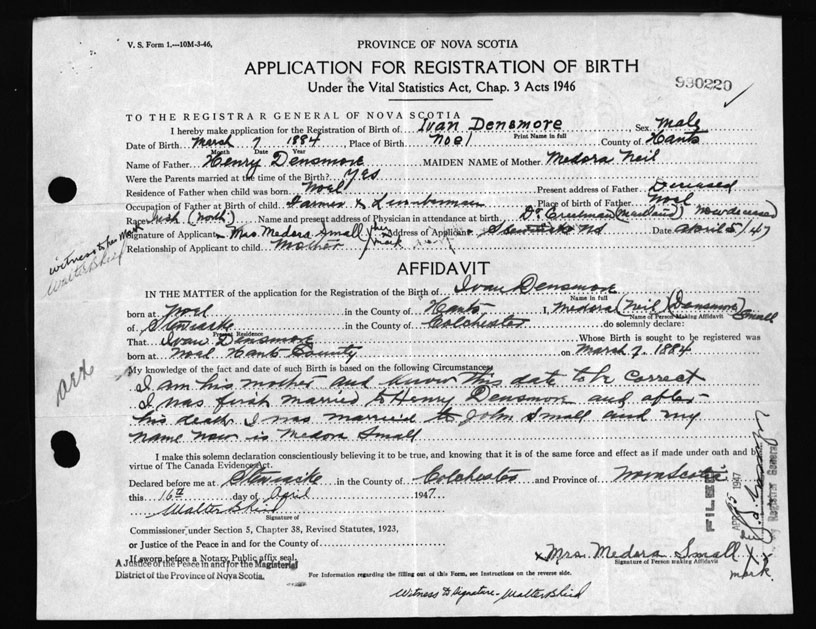 V. S. Form 1.—10M-3-46.
PROVINCE OF NOVA SCOTIA
APPLICATION FOR REGISTRATION OF BIRTH
Under the Vital Statistics Act, Chap. 3 Acts 1946
930220
TO THE REGISTRAR GENERAL OF NOVA SCOTIA
I hereby make application for the Registration of Birth of Ivan Densmore Sex Male
Print Name in full
Date of Birth March 7 1884, Place of Birth Noel County of Hants
Month Date Year
Name of Father Henry Densmore MAIDEN NAME of Mother Medora Neil
Were the Parents married at the time of the Birth? Yes
Residence of Father when child was born Noel Present address of Father Deceased
Occupation of Father at Birth of Child Farmer & Lumberman Place of birth of Father Noel
Race Irish (North) Name and present address of Physician in attendance at birth Dr (Maitland) Now deceased
Signature of Applicant Mrs. Medora Small her mark Address of Applicant NS Date April 5/47
Relationship of Applicant to child Mother
witness to her Mark
Walter
AFFIDAVIT
IN THE MATTER of the application for the Registration of the Birth of Ivan Densmore
Name in full
born at Noel in the County of Hants I, Medora (Neil) (Densmore) Small
Name of Person Making Affidavit
of Stewiacke in the County of Colchester do solemnly declare:
Present Residence
That Ivan Densmore Whose Birth is sought to be registered was
born at Noel Hants County on March 7, 1884
My knowledge of the fact and date of such Birth is based on the following Circumstances
I am his mother and know this date to be correct
I was first married to Henry Densmore and after
his death I was married to John Small and my
name now is Medora Small
I make this solemn declaration conscientiously believing it to be true, and knowing that it is of the same force and effect as if made under oath and by
virtue of The Canada Evidence Act.
Declared before me at Stewiacke in the County of Colchester and Province of Nova Scotia
this 16th day of April 1947
Walter
Signature of
Commissioner under Section 5, Chapter 38, Revised Statutes, 1923,
or Justice of the Peace in and for the County of
If sworn before a Notary Public affix seal.
A Justice of the Peace in and for the Magisterial
District of the Province of Nova Scotia.
For Information regarding the filling out of this Form, see Instructions on the reverse side.
x Mrs. Medora Small x
Signature of Person making Affidavit
mark
Witness to Signature - Walter
FILED
1947
Registrar General